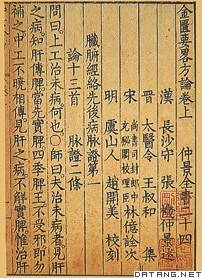 金匱要畧方論卷上 仲景全書二十四
漢 長沙守張 機仲景述
晉 太醫令 王叔和 集
宋 尚書司封郎中充秘閣校理臣林億詮次
明 虞山人 趙開美 校刻
臟腑經絡先後病脉證第一
論十三首 脉證二條
問曰上工治未病何也○師曰夫治未病者見肝
之病知肝傳脾當先實脾四季脾王不受邪即勿
補之中工不曉相傳見肝之病不解實脾惟治肝
DATANG.NET